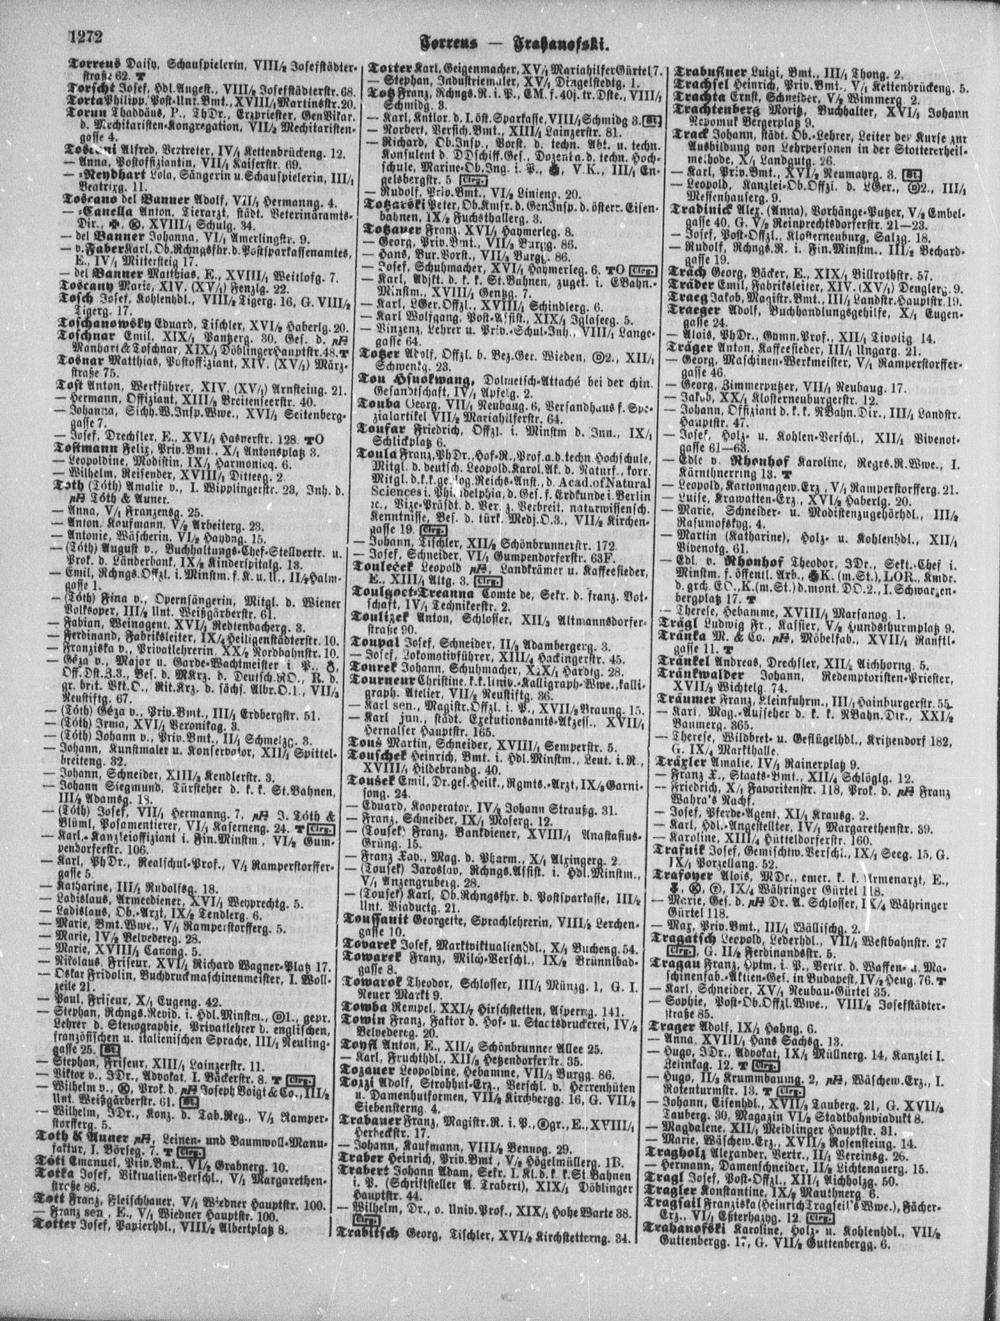 1272
Torrens — Trahanofski.
Torrens Daisy, Schauspielerin, VIII/2 Josefstädter-
straße 62.
Torscht Josef, Hdl.Angest., VIII/1 Josefstädterstr. 68.
Torta Philipp, Post-Unt.Bmt., XVIII/1 Martinstr. 20.
Torun Thaddäus, P., ThDr., Erzpriester, GenVikar.
d. Mechitaristen-Kongregation, VII/2 Mechitaristen-
gasse 4.
Toscani Alfred, Vertreter, IV/1 Kettenbrückeng. 12.
— Anna, Postoffiziantin, VII/1 Kaiserstr. 69.
— -Neydhart Lola, Sängerin u. Schauspielerin, III/1
Beatrixg. 11.
Toscano del Banner Adolf, VII/1 Hermanng. 4.
— -Canella Anton, Tierarzt, städt. Veterinäramts-
Dir., XVIII/1 Schulg. 34.
— del Banner Johanna, VI/1 Amerlingstr. 9.
— v. Faber Karl, Ob.Rchngsfhr. d. Postsparkassenamtes,
E., IV/2 Mittersteig 17.
— del Banner Matthias, E., XVIII/1 Weitlofg. 7.
Toscany Marie, XIV. (XV/1) Fenzlg. 22.
Tosch Josef, Kohlenhdl., VIII/2 Tigerg. 16, G. VIII/2
Tigerg. 17.
Toschanowsky Eduard, Tischler, XVI/2 Haberlg. 20.
Toschnar Emil, XIX/1 Pantzerg. 30, Ges. d.
Manhart & Toschnar, XIX/2 DöblingerHauptstr. 48.
Tosnar Matthias, Postoffiziant, XIV. (XV/1) März-
straße 75.
Tost Anton, Werkführer, XIV. (XV/1) Arnsteing. 21.
— Hermann, Offiziant, XIII/2 Breitenseerstr. 40.
— Johanna, Sichh.W.Insp.Wwe., XVI/1 Seitenberg-
gasse 7.
— Josef, Drechsler, E., XVI/1 Hasnerstr. 128.
Tostmann Felix, Priv.Bmt., X/1 Antonsplatz 3.
— Leopoldine, Modistin, IX/2 Harmonieg. 6.
— Wilhelm, Reisender, XVIII/2 Ditteeg. 2.
Toth (Tóth) Amalie v., I. Wipplingerstr. 23, Inh. d.
Tóth & Auner.
— Anna, V/1 Franzensg. 25.
— Anton, Kaufmann, V/2 Arbeiterg. 23.
— Antonie, Wäscherin, VI/2 Haydng. 15.
— (Tóth) August v., Buchhaltungs-Chef-Stellvertr. u.
Prok. d. Länderbank, IX/2 Kinderspitalg. 13.
— Emil, Rchngs.Offzl. i. Minstm. f. K. u. U., II/2 Halm-
gasse 1.
— (Tóth) Fina v., Opernsängerin, Mitgl. d. Wiener
Volksoper, III/2 Unt. Weißgärberstr. 61.
— Fabian, Weinagent, XVI/1 Redtenbacherg. 3.
— Ferdinand, Fabriksleiter, IX/4 Heiligenstädterstr. 10.
— Franziska v., Privatlehrerin, XX/2 Nordbahnstr. 10.
— Géza v., Major u. Garde-Wachtmeister i. P.,
Off. Dst.Z.3., Bes. d. MKrz. d. Deutsch.RO., R. d.
gr. brit. Vkt.O., Rit.Krz. d. sächs. Albr.O.1., VII/2
Neustiftg. 67.
— (Tóth) Géza v., Priv.Bmt., III/1 Erdbergstr. 51.
— (Tóth) Irma, XVI/1 Veronikag. 3.
— (Tóth) Johann v., Priv.Bmt., II/1 Schmelzg. 3.
— Johann, Kunstmaler u. Konservator, XII/1 Spittel-
breiteng. 32.
— Johann, Schneider, XIII/2 Kendlerstr. 3.
— Johann Siegmund, Türsteher d. k. k. St.Bahnen,
III/2 Adamsg. 18.
— (Tóth) Josef, VII/1 Hermanng. 7, J. Tóth &
Blüml, Posamentierer, VI/1 Kaserneng. 24. [Clrg.]
— Karl, Kanzleioffiziant i. Fin.Minstm., VI/2 Gum-
pendorferstr. 106.
— Karl, PhDr., Realschul-Prof., V/1 Ramperstorffer-
gasse 5.
— Katharine, III/1 Rudolfsg. 18.
— Ladislaus, Armeediener, XVI/1 Weyprechtg. 5.
— Ladislaus, Ob.-Arzt, IX/2 Tendlerg. 6.
— Marie, Bmt.Wwe., V/1 Ramperstorfferg. 5.
— Marie, IV/2 Belvedereg. 28.
— Marie, XVIII/1 Canong. 5.
— Nikolaus, Friseur, XVI/1 Richard Wagner-Platz 17.
— Oskar Fridolin, Buchdruckmaschinenmeister, I. Woll-
zeile 21.
— Paul, Friseur, X/1 Eugeng. 42.
— Stephan, Rchngs.Revid. i. Hdl.Minstm., 1., gepr.
Lehrer d. Stenographie, Privatlehrer d. englischen,
französischen u. italienischen Sprache, III/1 Reuling-
gasse 25.
— Stephan, Friseur, XIII/1 Lainzerstr. 11.
— Viktor v., JDr., Advokat, I. Bäckerstr. 8. [Clrg.]
— Wilhelm v., Prok. d. Joseph Voigt & Co., III/2
Unt. Weißgärberstr. 61
— Wilhelm, JDr., Konz. d. Tab.Reg., V/1 Ramper-
storfferg. 5.
Toth & Auner, Leinen- und Baumwoll-Manu-
faktur, I. Börseg. 7. [Clrg.]
Toti Emanuel, Priv.Bmt., VI/2 Grabnerg. 10.
Totka Josef, Viktualien-Verschl., V/2 Margarethen-
straße 86.
Tott Franz, Fleischhauer, V/1 Wiedner Hauptstr. 100.
— Franz sen., E., V/1 Wiedner Hauptstr. 100.
Totter Josef, Papierhdl., VIII/2 Albertplatz 8.
Totter Karl, Geigenmacher, XV/1 Mariahilfer Gürtel 7.
— Stephan, Industriemaler, XV/1 Dingelstedtg. 1.
Totz Franz, Rchngs.R. i. P., EM. f. 40j. tr. Dste., VIII/1
Schmidg. 3.
— Karl, Kntlor. d. I. öst. Sparkasse, VIII/1 Schmidg 3.
— Norbert, Versich.Bmt., XIII/1 Lainzerstr. 81.
— Richard, Ob.Insp., Vorst. d. techn. Abt. u. techn.
Konsulent d. DDschiff.Ges., Dozent a. d. techn. Hoch-
schule, Marine-Ob.Ing. i. P., V.K., III/1 En-
gelsbergstr. 5 [Clrg.]
— Rudolf, Priv.Bmt., VI/2 Linieng. 20.
Totzarski Peter, Ob.Kmsr. d. GenInsp. d. österr. Eisen-
bahnen, IX/2 Fuchsthallerg. 3.
Totzauer Franz, XVI/1 Haymerleg. 8.
— Georg, Priv.Bmt., VII/2 Burgg. 86.
— Hans, Bur.Vorst., VII/2 Burgg. 86.
— Josef, Schuhmacher, XVI/1 Haymerleg. 6. [Clrg.]
— Karl, Adjkt. d. k. k. St.Bahnen, zuget. i. EBahn.-
Minstm., XVIII/1 Gentzg. 7.
— Karl, LGer.Offzl., XVIII/2 Schindlerg. 6.
— Karl Wolfgang, Post-Assist., XIX/2 Iglaseeg. 5.
— Vinzenz, Lehrer u. Priv.-Schul-Inh., VIII/1 Lange-
gasse 64.
Totzer Adolf, Offzl. b. Bez.Ger. Wieden, 2., XII/1
Schwenkg. 23.
Tou Hsuokwang, Dolmetsch-Attaché bei der chin.
Gesandtschaft, IV/1 Apfelg. 2.
Touba Georg, VII/1 Neubaug. 6, Versandhaus f. Spe-
zialartikel VII/2 Mariahilferstr. 64.
Toufar Friedrich, Offzl. i. Minstm d. Inn., IX/1
Schlickplatz 6.
Toula Franz, PhDr., Hof-R., Prof. a. d. techn. Hochschule,
Mitgl. d. deutsch. Leopold.Karol.Ak. d. Naturf., korr.
Mitgl. d. k. k. geolog. Reichs-Anst., d. Acad. of Natural
Sciences i. Philadelphia, d. Ges. f. Erdkunde i. Berlin
ic., Vize-Präsdt. d. Ver. z. Verbreit. naturwissensch.
Kenntnisse, Bes. d. türk. Medj.O.3., VII/2 Kirchen-
gasse 19. [Clrg.]
— Johann, Tischler, XII/2 Schönbrunnerstr. 172.
— Josef, Schneider, VI/1 Gumpendorferstr. 63F.
Touleček Leopold, Landkrämer u. Kaffeesieder,
E., XIII/1 Altg. 3. [Clrg.]
Toulgoet-Treanna Comte de, Sekr. d. franz. Bot-
schaft, IV/1 Technikerstr. 2.
Toulizek Anton, Schlosser, XII/2 Altmannsdorfer-
straße 90.
Toupal Josef, Schneider, II/2 Adambergerg. 3.
— Josef, Lokomotivführer, XIII/1 Hackingerstr. 45.
Tourek Johann, Schuhmacher, XIX/1 Hardtg. 28.
Tourneur Christine, k. k. Univ.-Kalligraph-Wwe., kalli-
graph. Atelier, VII/2 Neustiftg. 36.
— Karl sen., Magistr.Offzl. i. P., XVII/2 Braung. 15.
— Karl jun., städt. Exekutionsamts-Akzess., XVII/1
Hernalser Hauptstr. 165.
Tous Martin, Schneider, XVIII/1 Semperstr. 5.
Touschek Heinrich, Bmt. i. Hdl.Minstm., Leut. i. R.,
XVIII/1 Hildebrandg. 40.
Toušek Emil, Dr. ges. Heilk., Rgmts.-Arzt, IX/2 Garni-
song. 24.
— Eduard, Kooperator, IV/2 Johann Straußg. 31.
— Franz, Schneider, IX/1 Moserg. 12.
— (Tousek) Franz, Bankdiener, XVIII/1 Anastasius-
Grüng. 15.
— Franz Xav., Mag. d. Pharm., X/1 Alxingerg. 2.
— (Tousek) Jaroslav, Rchngs.Assist. i. Hdl.Minstm.,
V/1 Anzengruberg. 28.
— (Tousek) Karl, Ob.Rchngsfhr. d. Postsparkasse, III/2
Unt. Viaductg. 21.
Toussanit Georgette, Sprachlehrerin, VIII/1 Lerchen-
gasse 10.
Tovarek Josef, Marktviktualienhdl., X/1 Bucheng. 54.
Towarek Franz, Milch-Verschl., IX/2 Brünnlbad-
gasse 8.
Towarok Theodor, Schlosser, III/1 Münzg. 1, G. I.
Neuer Markt 9.
Towba Rempel, XXI/2 Hirschstetten, Asperng. 141.
Towin Franz, Faktor d. Hof- u. Staatsdruckerei, IV/2
Belvedereg. 20.
Toyfl Anton, E., XII/1 Schönbrunner Allee 25.
— Karl, Fruchthdl., XII/2 Hetzendorferstr. 35.
Tozauer Leopoldine, Hebamme, VII/2 Burgg. 86.
Tozzi Adolf, Strohhut-Erz., Verschl. v. Herrenhüten
u. Damenhutformen, VII/2 Kirchbergg. 16, G. VII/2
Siebensterng. 4.
Trabauer Franz, Magistr.R. i. P., gr., E., XVIII/1
Herbeckstr. 17.
— Johann, Kaufmann, VIII/1 Bennog. 29.
Traber Heinrich, Priv.Bmt., V/2 Högelmüllerg. 1B.
Trabert Johann Adam, Sekr. I. Kl. d. k. k. St.Bahnen
i. P. (Schriftsteller A. Trabert), XIX/1 Döblinger
Hauptstr. 44.
— Wilhelm, Dr., o. Univ.Prof., XIX/1 Hohe Warte 38.
[Clrg.]
Trabitsch Georg, Tischler, XVI/2 Kirchstetterng. 34.
Trabusiner Luigi, Bmt., III/1 Thong. 2.
Trachsel Heinrich, Priv.Bmt., V/1 Kettenbrückeng. 5.
Trachta Ernst, Schneider, V/2 Wimmerg. 2.
Trachtenberg Moritz, Buchhalter, XVI/1 Johann
Nepomuk Bergerplatz 9.
Track Johann, städt. Ob.-Lehrer, Leiter der Kurse zur
Ausbildung von Lehrpersonen in der Stottererheil-
methode, X/1 Landgutg. 26.
— Karl, Priv.Bmt., XVI/2 Neumayrg. 3.
— Leopold, Kanzlei-Ob.Offzl. d. LGer., 2., III/1
Messenhauserg. 9.
Tradinick Alex. (Anna), Vorhänge-Putzer, V/2 Embel-
gasse 40, G. V/2 Reinprechtsdorferstr. 21—23.
— Josef, Post-Offzl., Klosterneuburg, Salzg. 18.
— Rudolf, Rchngs.R. i. Fin.Minstm., III/2 Bechard-
gasse 19.
Träch Georg, Bäcker, E., XIX/1 Billrothstr. 57.
Träder Emil, Fabriksleiter, XIV. (XV/1) Denglerg. 9.
Traeg Jakob, Magistr.Bmt., III/1 Landstr.Hauptstr. 19.
Traeger Adolf, Buchhandlungsgehilfe, X/1 Eugen-
gasse 24.
— Alois, PhDr., Gymn.Prof., XII/1 Tivolig. 14.
Träger Anton, Kaffeesieder, III/1 Ungarg. 21.
— Georg, Maschinen-Werkmeister, V/1 Ramperstorffer-
gasse 46.
— Georg, Zimmerputzer, VII/1 Neubaug. 17.
— Jakob, XX/1 Klosterneuburgerstr. 12.
— Johann, Offiziant d. k. k. NBahn.Dir., III/1 Landstr.
Hauptstr. 47.
— Josef, Holz- u. Kohlen-Verschl., XII/1 Vivenot-
gasse 61—63.
— Edle v. Rhonhof Karoline, Regrs.R.Wwe., I.
Kärnthnerring 13.
— Leopold, Kartonnagew.Erz., V/1 Ramperstorfferg. 21.
— Luise, Krawatten-Erz., XVI/2 Haberlg. 20.
— Marie, Schneider- u. Modistenzugehörhdl., III/2
Rasumofskyg. 4.
— Martin (Katharine), Holz- u. Kohlenhdl., XII/1
Vivenotg. 61.
— Edl. v. Rhonhof Theodor, JDr., Sekt.-Chef i.
Minstm. f. öffentl. Arb., K. (m. St.), LOR., Kmdr.
d. grch. EO., K. (m. St.) d. mont. DO.2., I. Schwarzen-
bergplatz 17.
— Therese, Hebamme, XVIII/2 Marsanog. 1.
Trägl Ludwig Fr., Kassier, V/2 Hundsthurmplatz 9.
Tränka M. & Co., Möbelfab., XVII/1 Ranftl-
gasse 11.
Tränkel Andreas, Drechsler, XII/1 Aichhorng. 5.
Tränkwalder Johann, Redemptoristen-Priester,
XVII/2 Wichtelg. 74.
Träumer Franz, Leinfuhrm., III/1 Hainburgerstr. 55.
— Karl, Mag.-Aufseher d. k. k. NBahn.Dir., XXI/2
Baumerg. 365.
— Therese, Wildbret- u. Geflügelhdl., Kritzendorf 182,
G. IX/4 Markthalle.
Träxler Amalie, IV/1 Rainerplatz 9.
— Franz X., Staats-Bmt., XII/2 Schlöglg. 12.
— Friedrich, X/1 Favoritenstr. 118, Prok. d. Franz
Wahra's Nachf.
— Josef, Pferde-Agent, XI/1 Krausg. 2.
— Karl, Hdl.-Angestellter, IV/2 Margarethenstr. 39.
— Karoline, XIII/2 Hütteldorferstr. 160.
Trafnik Josef, Gemischtw.Verschl., IX/2 Seeg. 15, G.
IX/1 Porzellang. 52.
Trafoyer Alois, MDr., emer. k. k. Armenarzt, E.,
IX/2 Währinger Gürtel 118.
— Marie, Ges. d. Dr. A. Schlosser, IX/2 Währinger
Gürtel 118.
— Max, Priv.Bmt., III/1 Wällischg. 2.
Tragatsch Leopold, Lederhdl., VII/1 Westbahnstr. 27
[Clrg.], G. II/2 Ferdinandsstr. 5.
Tragau Franz, Hptm. i. P., Vertr. d. Waffen- u. Ma-
schinenfab.-Aktien-Ges. in Budapest, IV/2 Heug. 76.
— Karl, Schneider, XV/1 Neubau-Gürtel 35.
— Sophie, Post-Ob.Offzl.Wwe., VIII/2 Josefstädter-
straße 85.
Trager Adolf, IX/1 Hahng. 6.
— Anna, XVIII/1 Hans Sachsg. 13.
— Hugo, JDr., Advokat, IX/4 Müllnerg. 14, Kanzlei I.
Leinkag. 12. [Clrg.]
— Hugo, II/2 Krummbaumg. 2, Wäschew.Erz., I.
Rotenturmstr. 13. [Clrg.]
— Johann, Eisenhdl., XVII/2 Tauberg. 21, G. XVII/2
Tauberg. 30, Magazin VI/2 Stadtbahnviadukt 8.
— Magdalene, XII/1 Meidlinger Hauptstr. 31.
— Marie, Wäschew.Erz., XVII/2 Rosensteing. 14.
Tragholz Alexander, Vertr., II/2 Vereinsg. 26.
— Hermann, Damenschneider, II/2 Lichtenauerg. 15.
Tragl Josef, Post-Offzl., XII/1 Aichholzg. 50.
Tragler Konstantine, IX/2 Mauthnerg. 6.
Tragsail Franziska (Heinrich Tragseil's Wwe.), Fächer-
Erz., VI/1 Eszterházyg. 12. [Clrg.]
Trahanofski Karoline, Holz- u. Kohlenhdl., VII/2
Guttenbergg. 17, G. VII/2 Guttenbergg. 6.